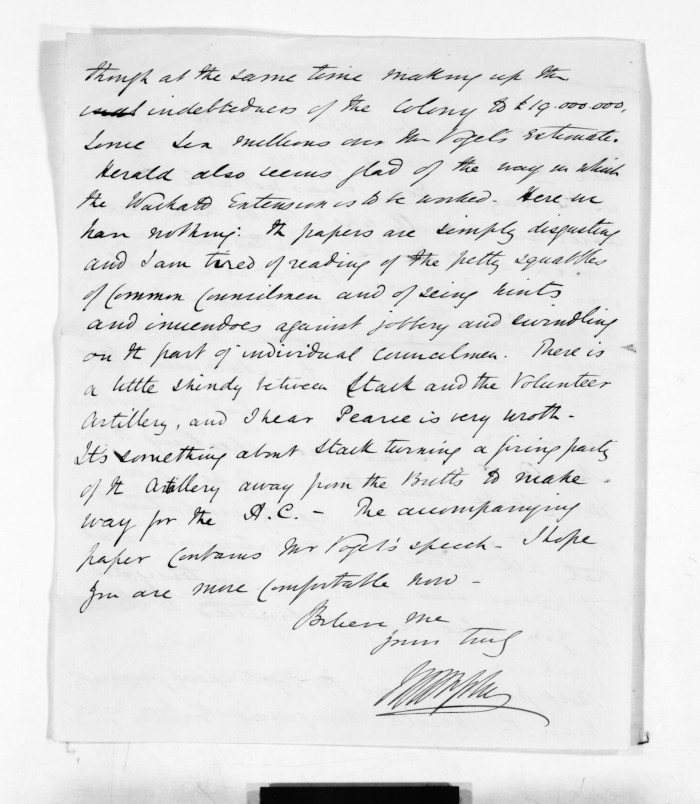 though at the same time making up the
indebtedness of the Colony to £19.000.000,
some six millions over Mr Vogel's Estimate.
Herald also seems glad of the way in which
the Waikato Extension is to be worked. Here we
have nothing: the papers are simply disgusting
and I am tired of reading of the petty squabbles
of Common Councilmen and of seing hints
and inuendoes against jobbery and swindling
on the part of individual councilmen. There is
a little shindy between Stack and the Volunteer
Artillery, and I hear Pearce is very wroth -
Its something about Stack turning a firing party
of the Artillery away from the Butts to make
way for the A.C. - The accompanying
paper contains Mr Vogel's speech - I hope
you are more comfortable now -
Believe me
Yours truly